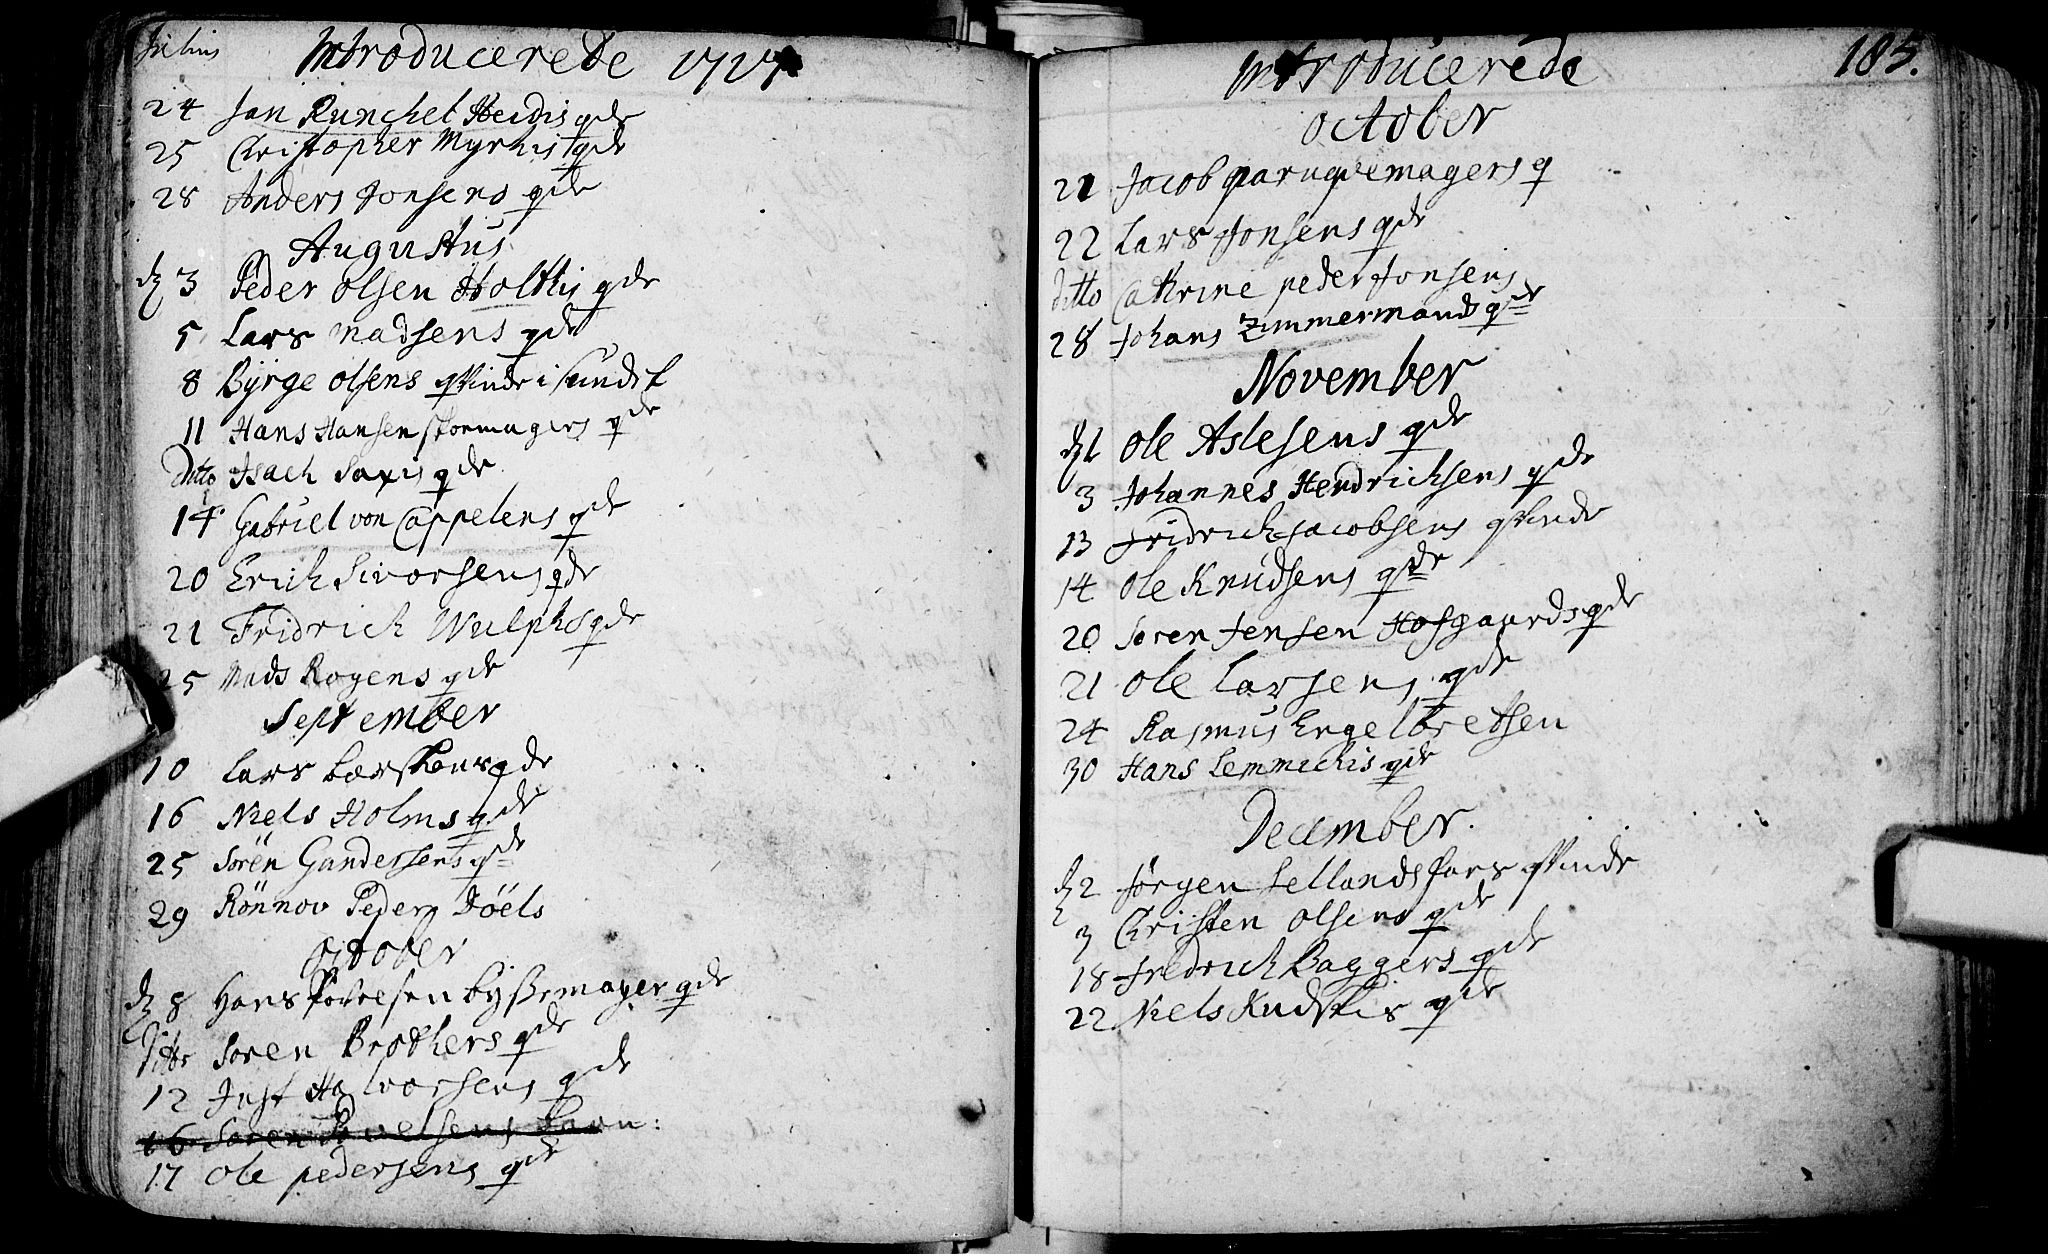 Julius Introducerede 1727
24 Jan Runchel Heidis qde
25 Christopher Myrhis qde
28 Anders Jonsens qde
Augustus
d 3 Peder Olsen Holttis qde
5 Lars Madsens qde
8 Byrge Olsens qvinde i sundet
11 Hans Hansen skomagers qde
Ditto Isach Saxis qde
14 Gabriel von Cappelens qde
20 Erich Sivorsens qde
21 Fridrich Wulphs qde
25 Mads Royens qde
September
10 Lars qde
16 Niels Holms qde
25 Sören Gundersens qde
29 Rönnov Peder Döels
October
d 8 Hans Povelsen byssemager qde
Ditto Soren Brothers qde
12 Just Halvorsens qde
16 Soren Povelsens barn:
17 Ole pedersens qde
Introducerede 185.
October
21 Jacob paruqvemagers q
22 Lars Jonsens qde
ditto Cathrine peder Jonsens
28 Johans Zimmermands qde
November
d 1 Ole Aslesens qde
3 Johannes Hendrichsens qde
13 Fridrich Jacobsens qvinde
14 Ole Knudsens qde
20 Soren Jensen Hofgaards qde
21 Ole Larsens qde
24 Rasmus Engelbretsen
30 Hans Lemmichis qde
December.
d 2 Jörgen Sellandsfars qvinde
3 Christen Olsens qde
18 Fredrich Baggers qde
22 Niels Rudskis qde